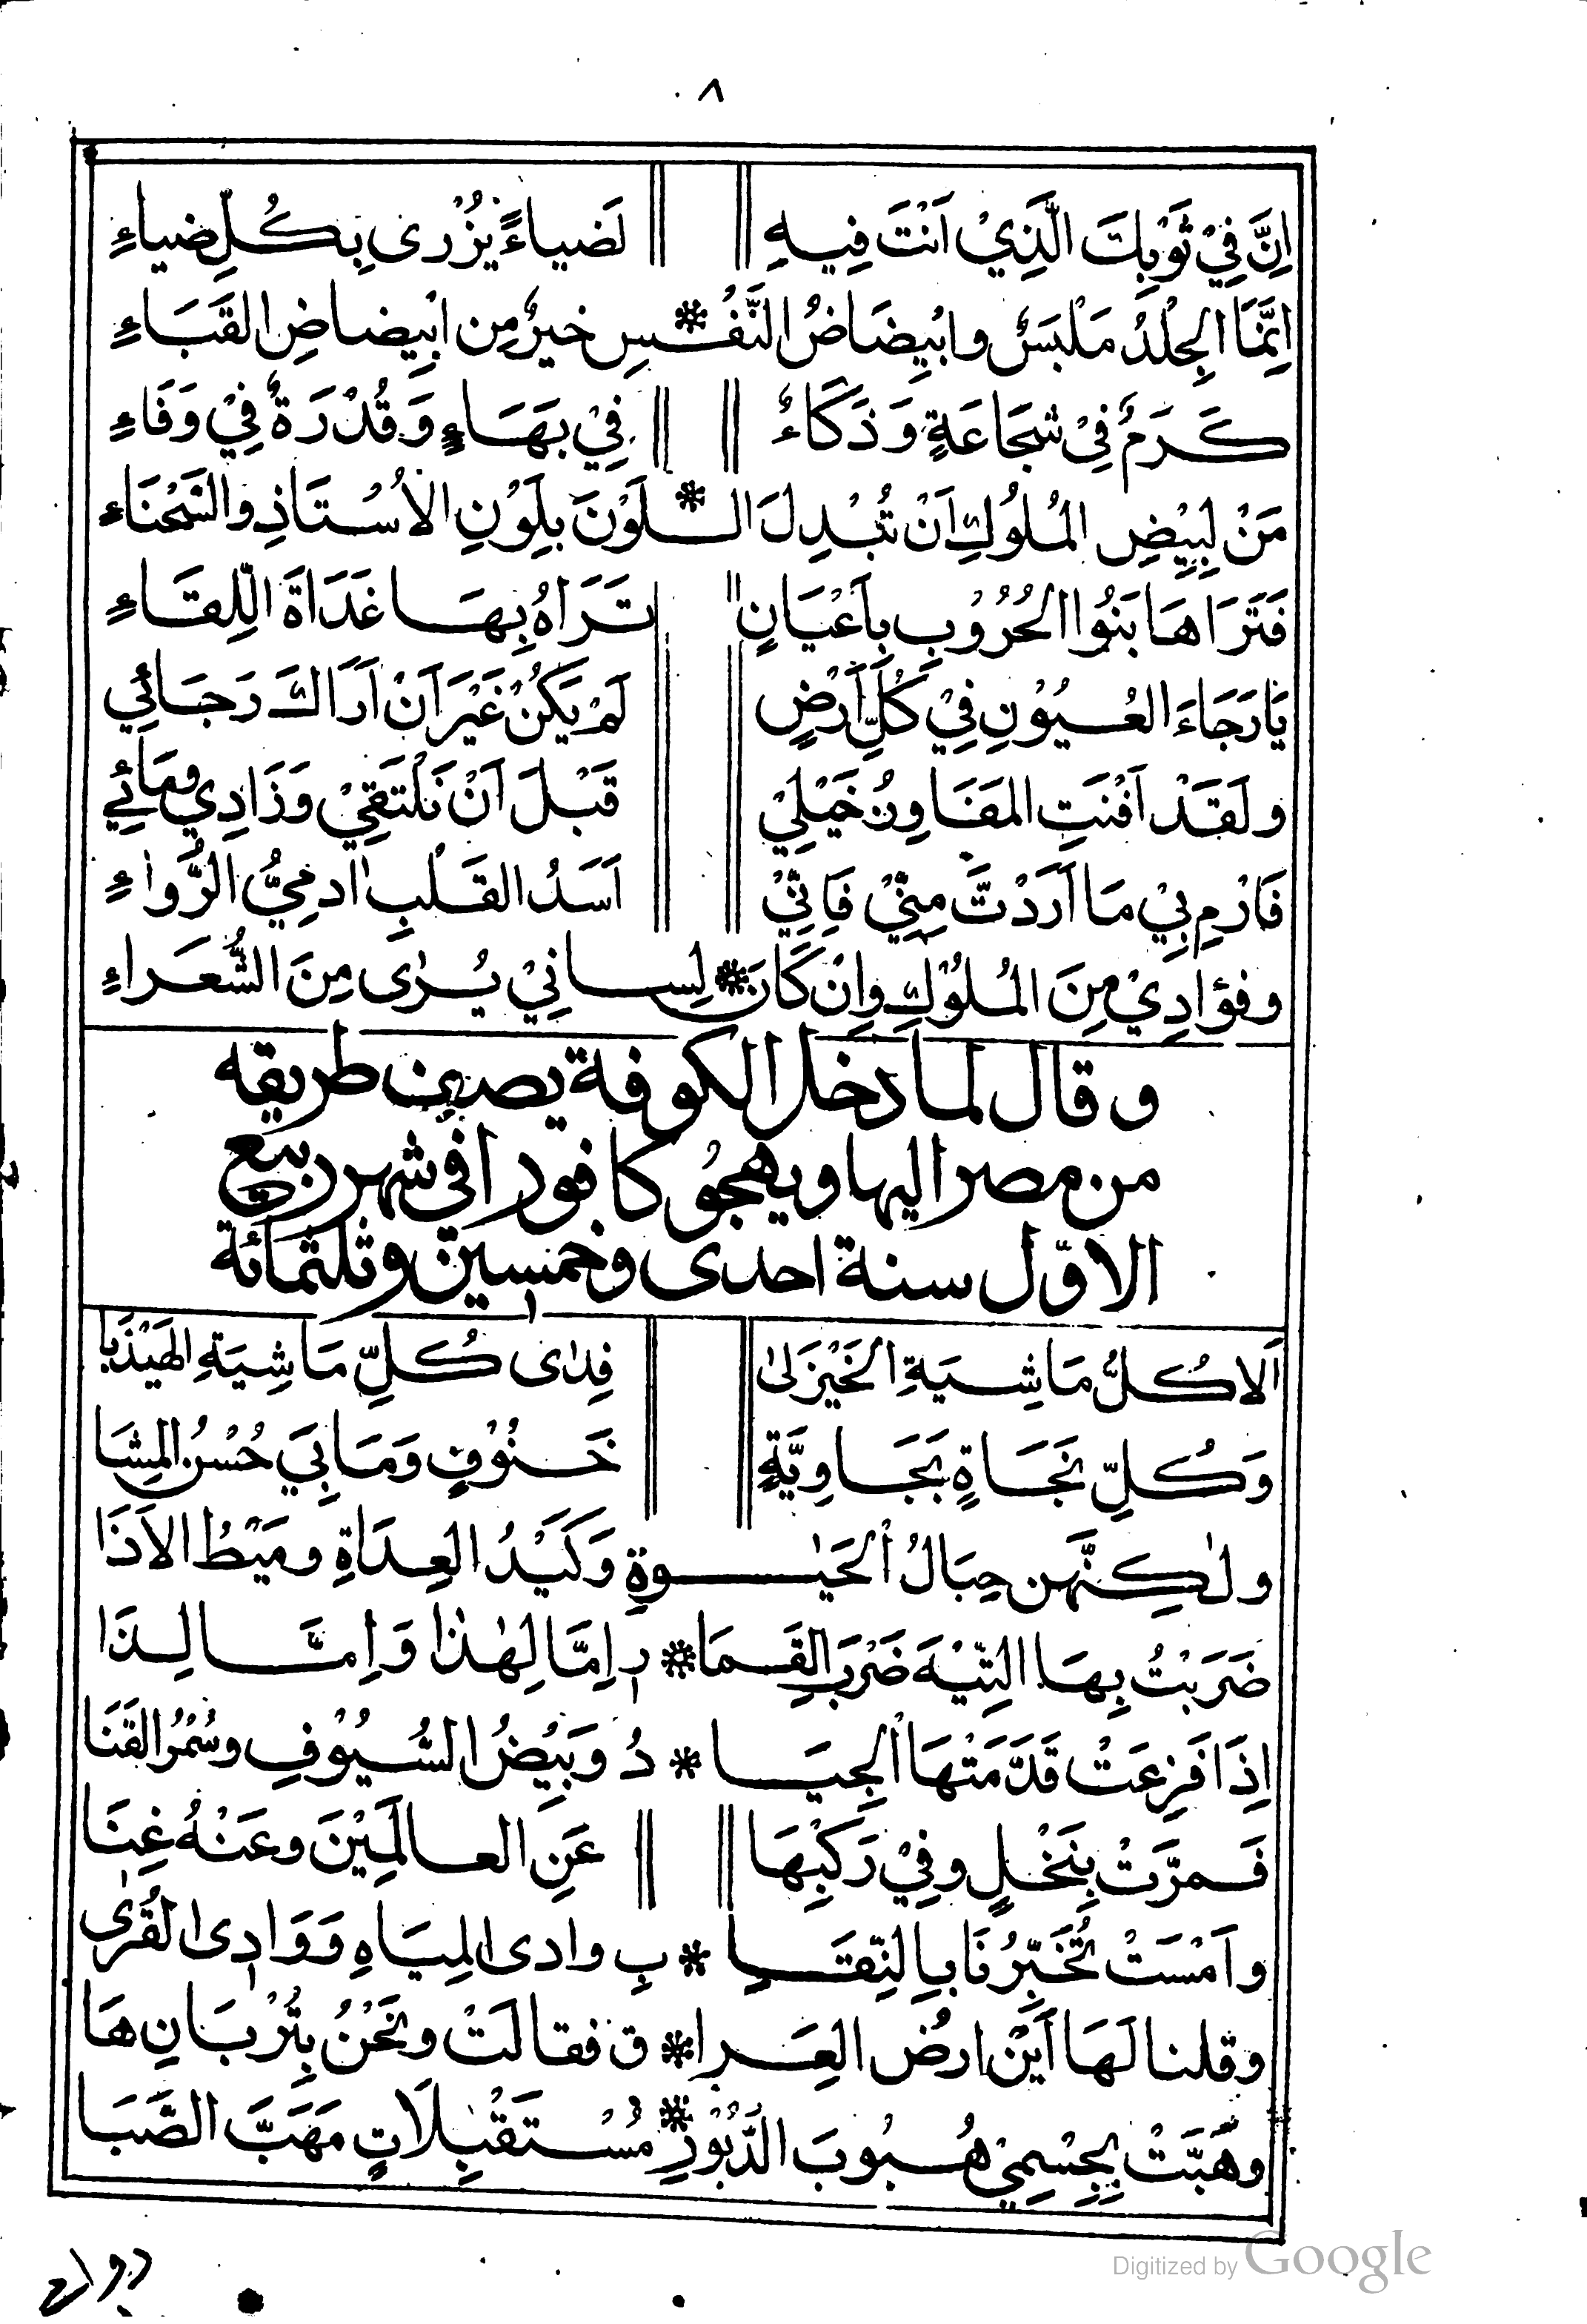 ٨
اِنَّ فِيْ ثَوْبِكَ الَّذِيْ اَنْتَ فِيهِ لَضياءً يُزْرى بِكُلِّ ضِياءِ
اِنَّمَا الجِلْدُ مَلْبَسٌ وابْيِضَاضُ النَّفْسِ خيرٌ مِن ابْيِضاضِ القَبَاءِ
كَرَمٌ فِيْ شَجَاعَةٍ وَذَكَاءٌ فِيْ بَهَاءٍ وَقُدْرَةٌ فِيْ وَفَاءِ
مَنْ لِبِيْضِ المُلُوكِ اَنْ تُبْدِلَ اللَّوْنَ بِلَوْنِ الاُسْتَاذِ والسَّحْنَاءِ
فَتَرَاهَا بَنُوا الحُرُوْبِ بِاَعْيَانٍ تَرَاهُ بِهَا غَدَاةَ اللِّقَاءِ
يَا رَجَاءَ العُيُوْنِ فِيْ كُلِّ اَرْضٍ لَمْ يَكُنْ غَيْرَ اَنْ اَرَاكَ رَجَائِي
ولَقَدْ اَفْنَتِ المَفَاوِزُ خَيْلِيْ قَبْلَ اَنْ نَلْتَقِيْ وَزَادِي ومَائِي
فَارْمِ بِيْ مَا اَرَدْتَ مِنِّيْ فَاِنِّيْ اَسَدُ القَلْبِ اٰدَمِيُّ الرُّواءِ
وفؤادِيْ مِنَ المُلُوْكِ وِاِنْ كَانَ * لِسانِيْ يُرٰى مِنَ الشُّعَراءِ
وقال لما دخل الكوفة يصف طريقه
من مصر اليها ويهجو كافورا في شهر ربيع
الاوّل سنة احدى وخمسين وثلثمائة
اَلا كُلُّ مَاشِيَةِ الخَيْزَلىٰ فِدٰى كُلِّ مَاشِيَةِ الهَيْذَبا
وَكُلِّ نَجَاةٍ بَجَاوِيَّةٍ خَنُوْفٍ وَمَا بِيَ حُسْنُ المِشَا
ولٰكِنَّهن حِبَالُ الحَيٰوةِ وَكَيْدُ العِدَاةِ ومَيْطُ الاَذَا
ضَرَبْتُ بِهَا التِّيْهَ ضَرْبَ القِمَا * رِ اِمَّا لِهٰذَا وَاِمَّا لِذَا
اِذَا فَزِعَتْ قَدَّمَتْهَا الجِيَا * دُ وَبِيْضُ السُّيُوْفِ وسُمْرُ القَنَا
فَمرَّتْ بِنَخْلٍ وفِيْ رَكْبِهَا عَنِ العالَمِيْنَ وعَنْهُ غِنَا
واَمْسَتْ تُخَبِّرُنَا بِالنِّقَا * بِ وادى المِيَاهِ وَوَادِى القُرٰى
وقلنا لَهَا اَيْنَ ارضُ العِرا * ق فقالَتْ ونَحْنُ بِتُرْبَانِ هَا
وهَبَّتْ بِجِسْمِيْ هُبُوبَ الدَّبُوْرِ * مُسْتَقْبِلَاتٍ مَهَبَّ الصَّبَا
Digitized by Google